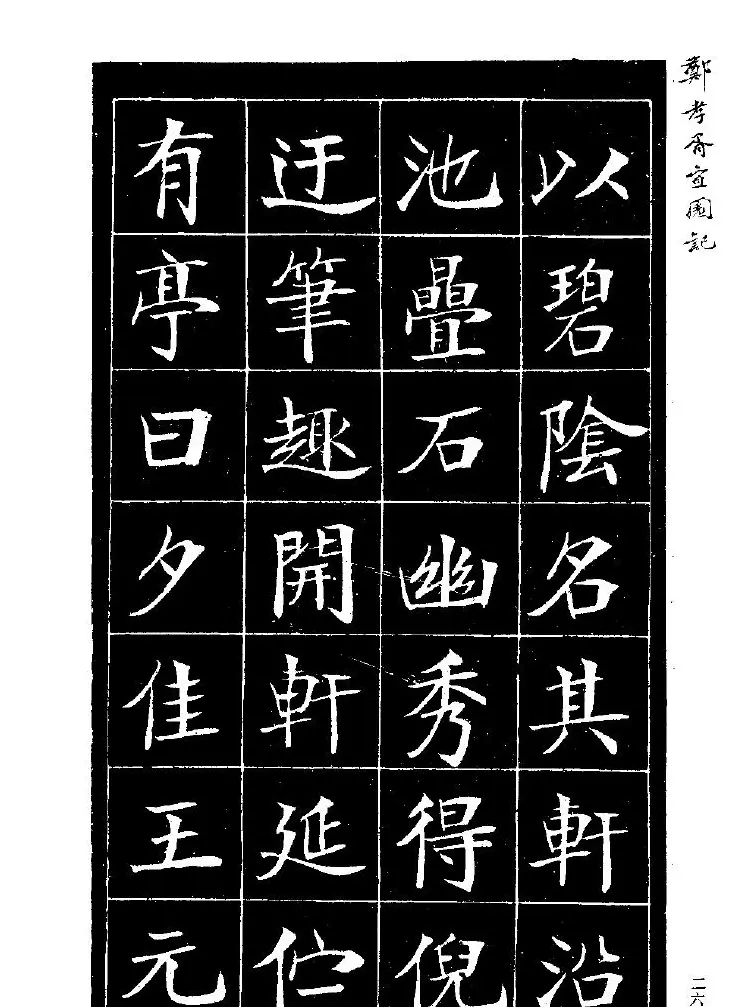 鄭孝胥壺園記
以碧陰名其軒沿
池疊石幽秀得倪
迂筆趣開軒延佇
有亭曰夕佳王元
二六